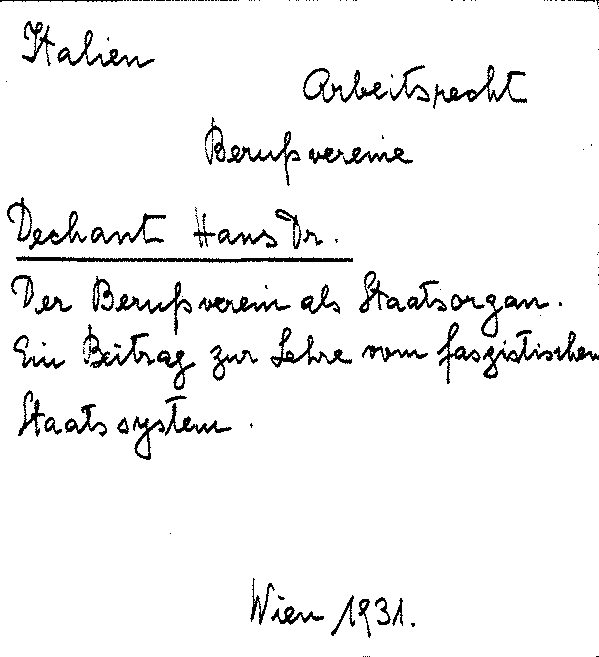 Italien
Arbeitsrecht
Berufsvereine
Dechant Hans Dr.
Der Berufsverein als Staatsorgan.
Ein Beitrag zur Lehre vom faszistischen
Staatssystem.
Wien 1931.